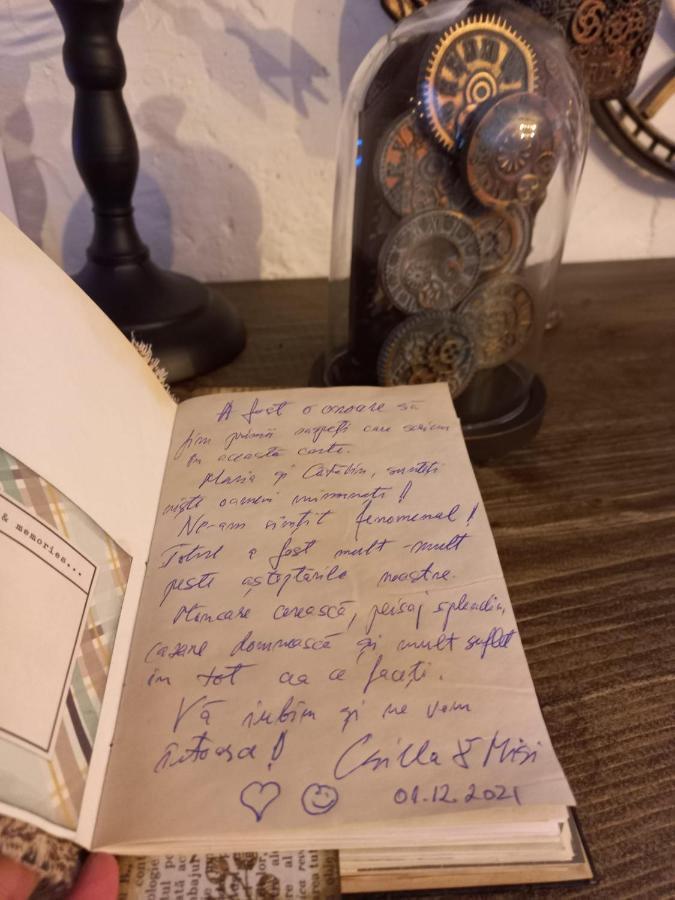 A fost o onoare să
fim primii oaspeți care scriem
în această carte.
Maria și Cătălin, sunteți
niște oameni minunați!
Ne-am simțit fenomenal!
Totul a fost mult-mult
peste așteptările noastre.
Mâncare cerească, peisaj splendid,
cazare domnească și mult suflet
în tot ceea ce faceți.
Vă iubim și ne vom
întoarce!
Csilla & Misi
01.12.2021
& memories...